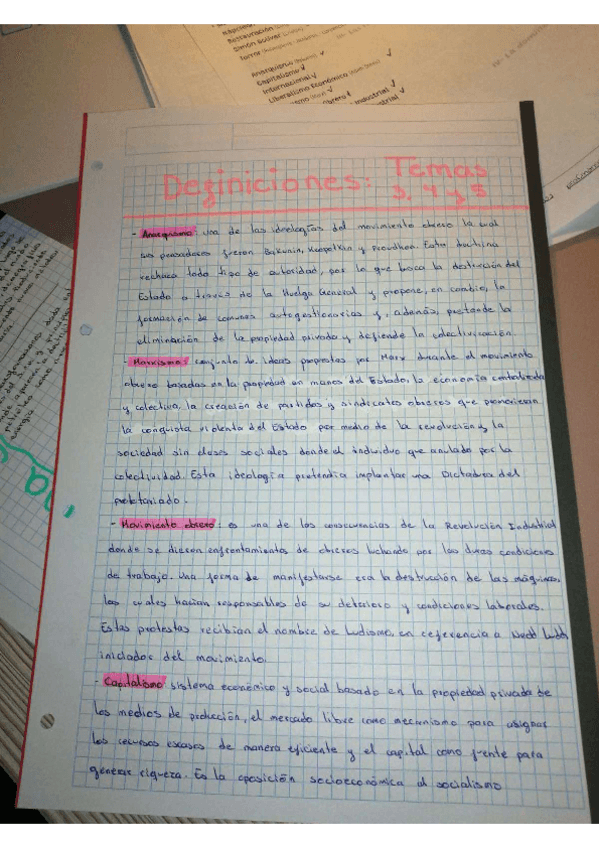 Restauración
Simón Bolívar
Anarquismo
Capitalismo ✓
Internacional ✓
Liberalismo Económico
Definiciones: Temas
3, 4 y 5
- Anarquismo: una de las ideologías del movimiento obrero la cual
sus pensadores fueron Bakunin, Kropotkin y Proudhon. Esta doctrina
rechaza todo tipo de autoridad, por lo que busca la destrucción del
Estado a través de la Huelga General y propone, en cambio, la
formación de comunas autogestionarias y, además, pretende la
eliminación de la propiedad privada y defiende la colectivización.
- Marxismo: conjunto de ideas propuestas por Marx durante el movimiento
obrero basadas en la propiedad en manos del Estado, la economía centralizada
y colectiva, la creación de partidos y sindicatos obreros que promovieran
la conquista violenta del Estado por medio de la revolución y la
sociedad sin clases sociales donde el individuo que anulado por la
colectividad. Esta ideología pretendía implantar una Dictadura del
proletariado.
- Movimiento obrero: es una de las consecuencias de la Revolución Industrial
donde se dieron enfrentamientos de obreros luchando por las duras condiciones
de trabajo. Una forma de manifestarse era la destrucción de las máquinas,
las cuales hacían responsables de su deterioro y condiciones laborales.
Estas protestas recibían el nombre de Ludismo, en referencia a Nedd Ludd,
iniciador del movimiento.
- Capitalismo: sistema económico y social basado en la propiedad privada de
los medios de producción, el mercado libre como mecanismo para asignar
los recursos escasos de manera eficiente y el capital como fuente para
generar riqueza. Es la oposición socioeconómica al socialismo